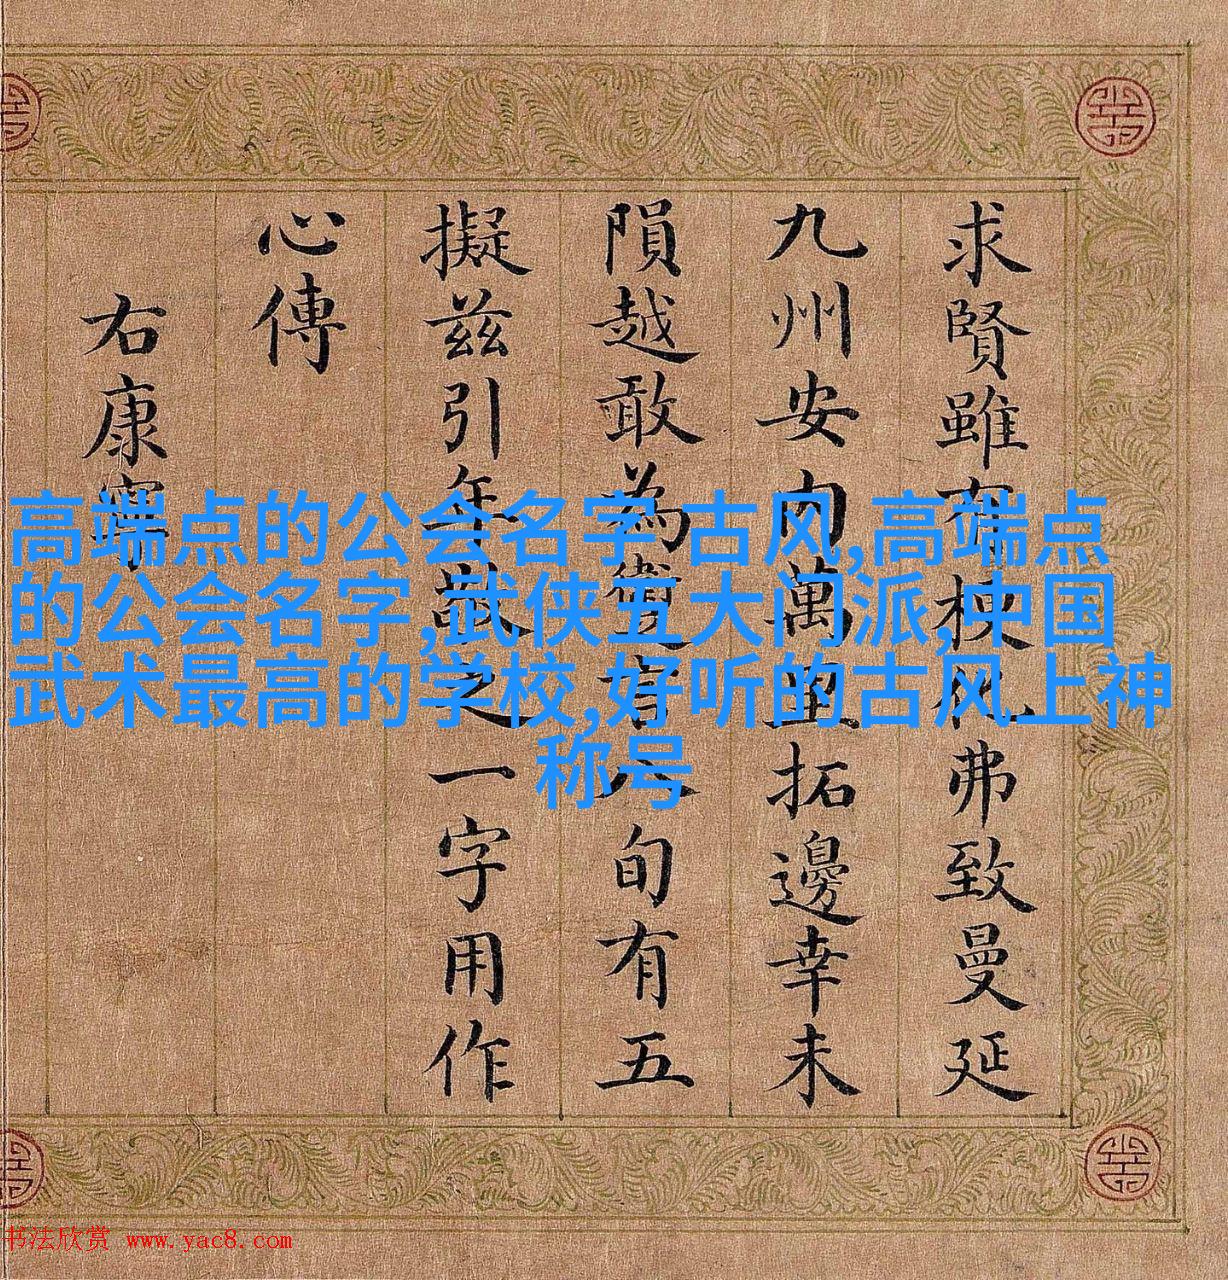 求賢雖有梗化弗致曼延
九州安内萬里拓邊幸未
隕越敢為八旬有五
擬兹引年敬之一字用作
心傳
右康寧
高端点的公会名字 古风,高端点
的公会名字,武侠五大门派,中国
武术最高的学校,好听的古风上神
称号
书法欣赏 www.yac8.com